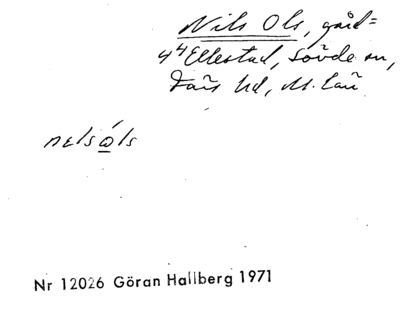 Nils Ols, gård=
4⁴ Ellestad, Sövde sn,
Färs hd, M. län
nɛlsɷ́ls
Nr 12026 Göran Hallberg 1971